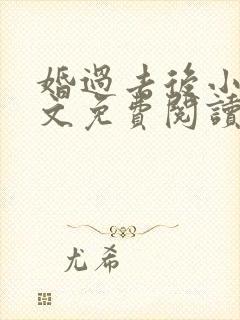 婚過去後小
文免費閱讀
尤希